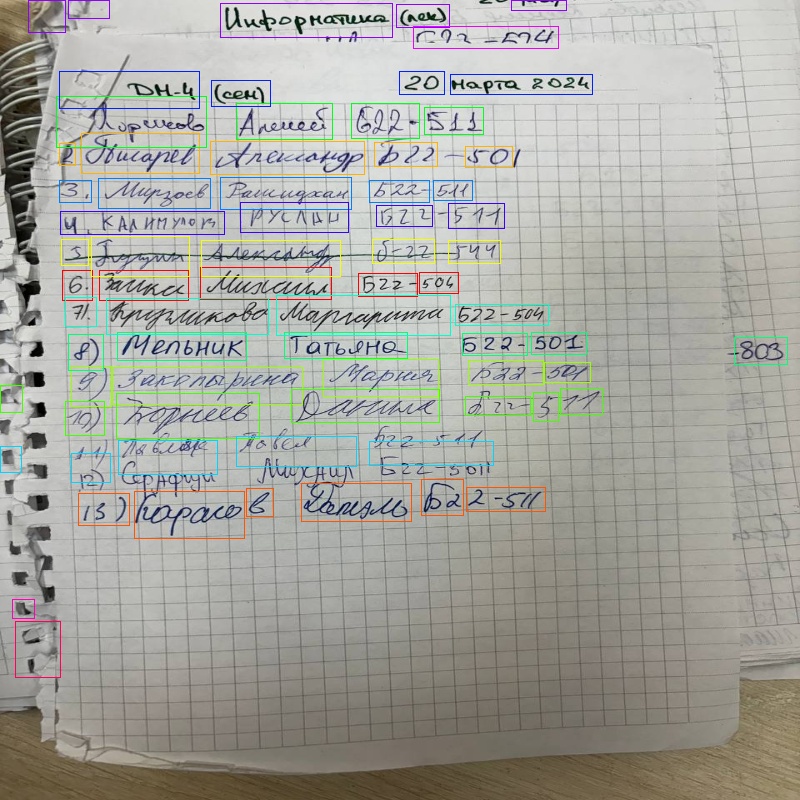 Информатика (лек)
Б22-514
ДМ-4 (сем) 20 марта 2024
Алексей Б22-511
2 Писарев Александр Б22-501
3. Мирзоев Рашидхан Б22-511
4. КАЛИМУЛОВ РУСЛАН Б22-511
5 Гущин Александр Б-22 544
6. Заика Михаил Б22-504
7). Кругликова Маргарита Б22-504
8) Мельник Татьяна Б22-501
-803
9) Закопырина Мария Б22-501
10) Корнеев Данила Б22-511
11) Павлюк Павел Б22-511
12) Михаил Б22-501
13) Карасов Даниэль Б22-511